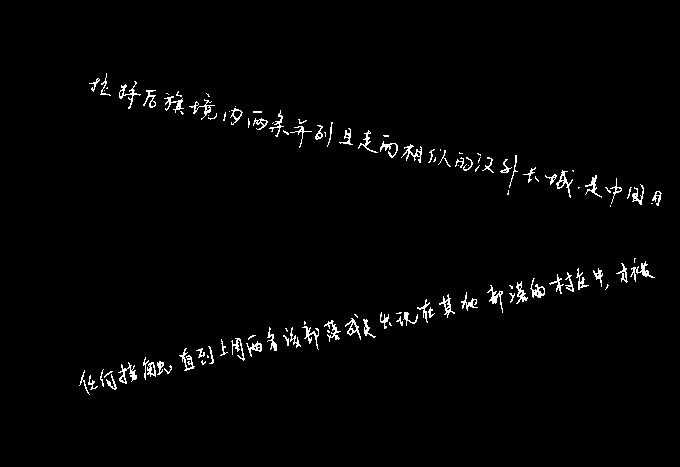 拉特后旗境内两条并列且走向相似的汉外长城,是中国目
任何接触,直到上周两名该部落成员出现在其他部落的村庄中,才被